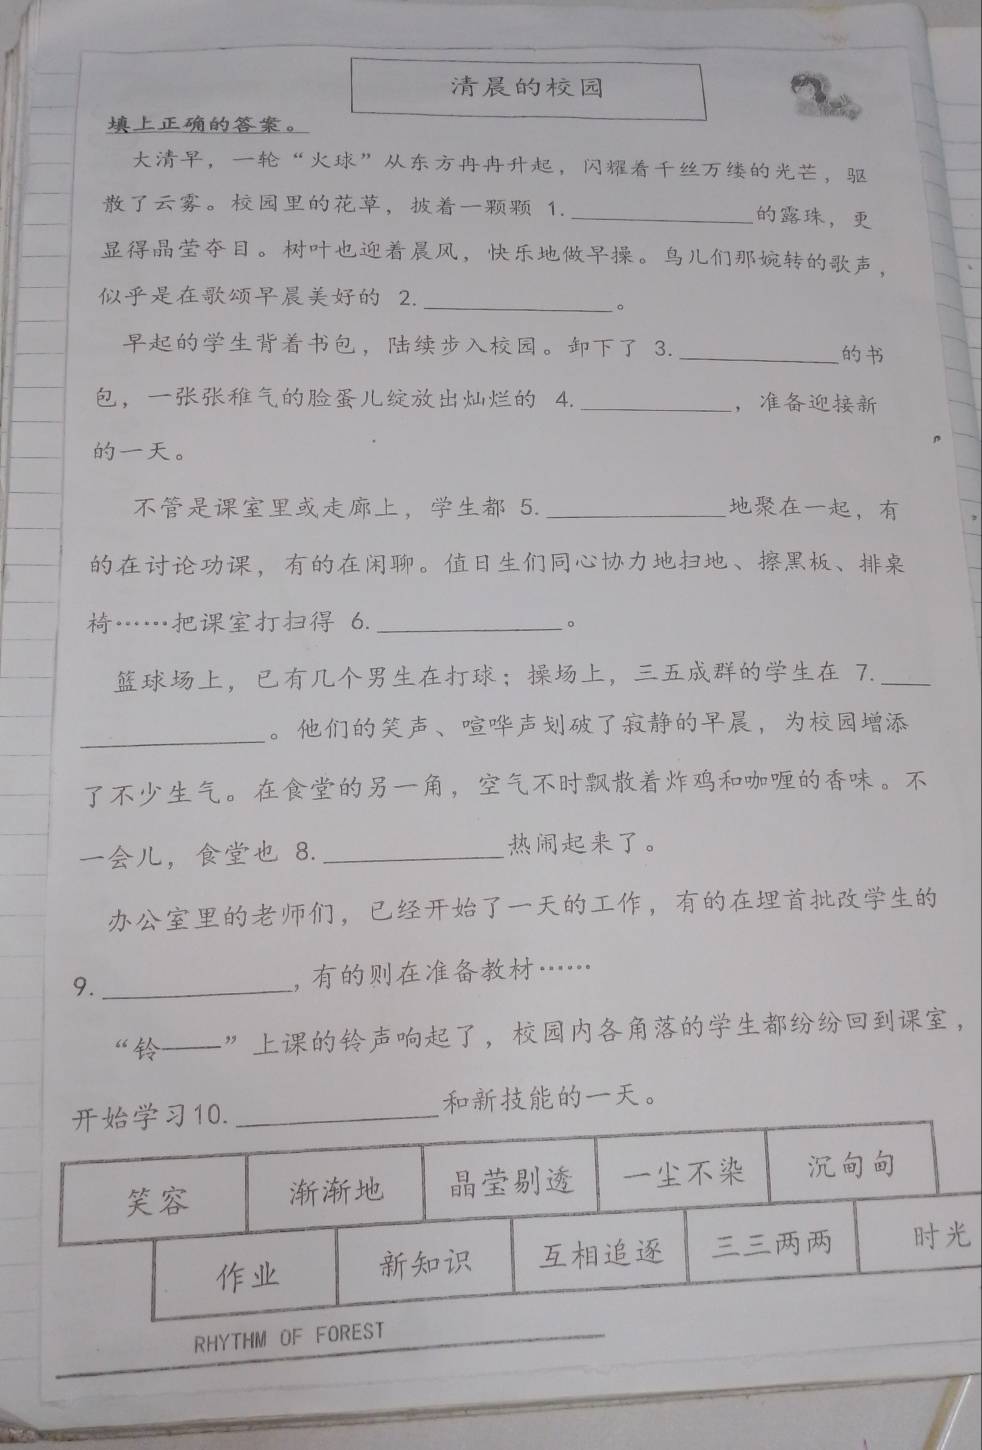 清晨的校园
填上正确的答案。
大清早，一轮“火球”从东方冉冉升起，闪耀着千丝万缕的光芒，驱
散了云雾。校园里的花草，披着一颗颗 1.____________的露珠，更
显得晶莹夺目。树叶也迎着晨风，快乐地做早操。鸟儿们那婉转的歌声，
似乎是在歌颂早晨美好的 2.____________。
早起的学生背着书包，陆续步入校园。卸下了 3.____________的书
包，一张张稚气的脸蛋儿绽放出灿烂的 4.____________，准备迎接新
的一天。
不管是课室里或走廊上，学生都 5.____________地聚在一起，有
的在讨论功课，有的在闲聊。值日生们同心协力地扫地、擦黑板、排桌
椅……把课室打扫得 6.____________。
篮球场上，已有几个男生在打球；操场上，三五成群的学生在 7.____
____________。他们的笑声、喧哗声划破了寂静的早晨，为校园增添
了不少生气。在食堂的另一角，空气不时飘散着炸鸡和咖喱的香味。不
一会儿，食堂也 8.____________热闹起来了。
办公室里的老师们，已经开始了一天的工作，有的在埋首批改学生的
9.____________，有的则在准备教材……
“铃——”上课的铃声响起了，校园内各角落的学生都纷纷回到课室，
开始学习10.____________和新技能的一天。
笑容 渐渐地 晶莹剔透 一尘不染 沉甸甸
作业 新知识 互相追逐 三三两两 时光
RHYTHM OF FOREST